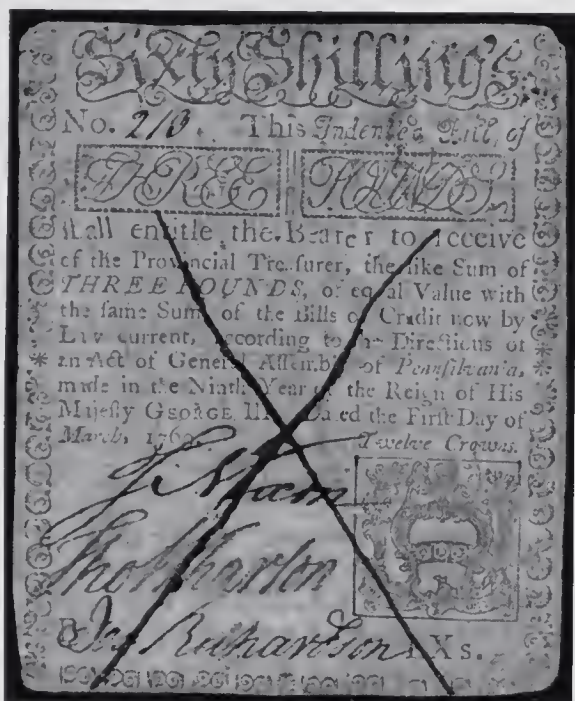 Sixty Shillings.
No. 213. This Indented Bill, of
THREE POUNDS
shall entitle the Bearer to receive
of the Provincial Treasurer, the like Sum of
THREE POUNDS, of equal Value with
the same Sum of the Bills of Credit now by
Law current, according to the Directions of
an Act of General Assembly of Pennsilvania,
made in the Ninth Year of the Reign of His
Majesty GEORGE III. Dated the First Day of
March, 1769.
Twelve Crowns.
Tho Wharton
Richardson LXs.